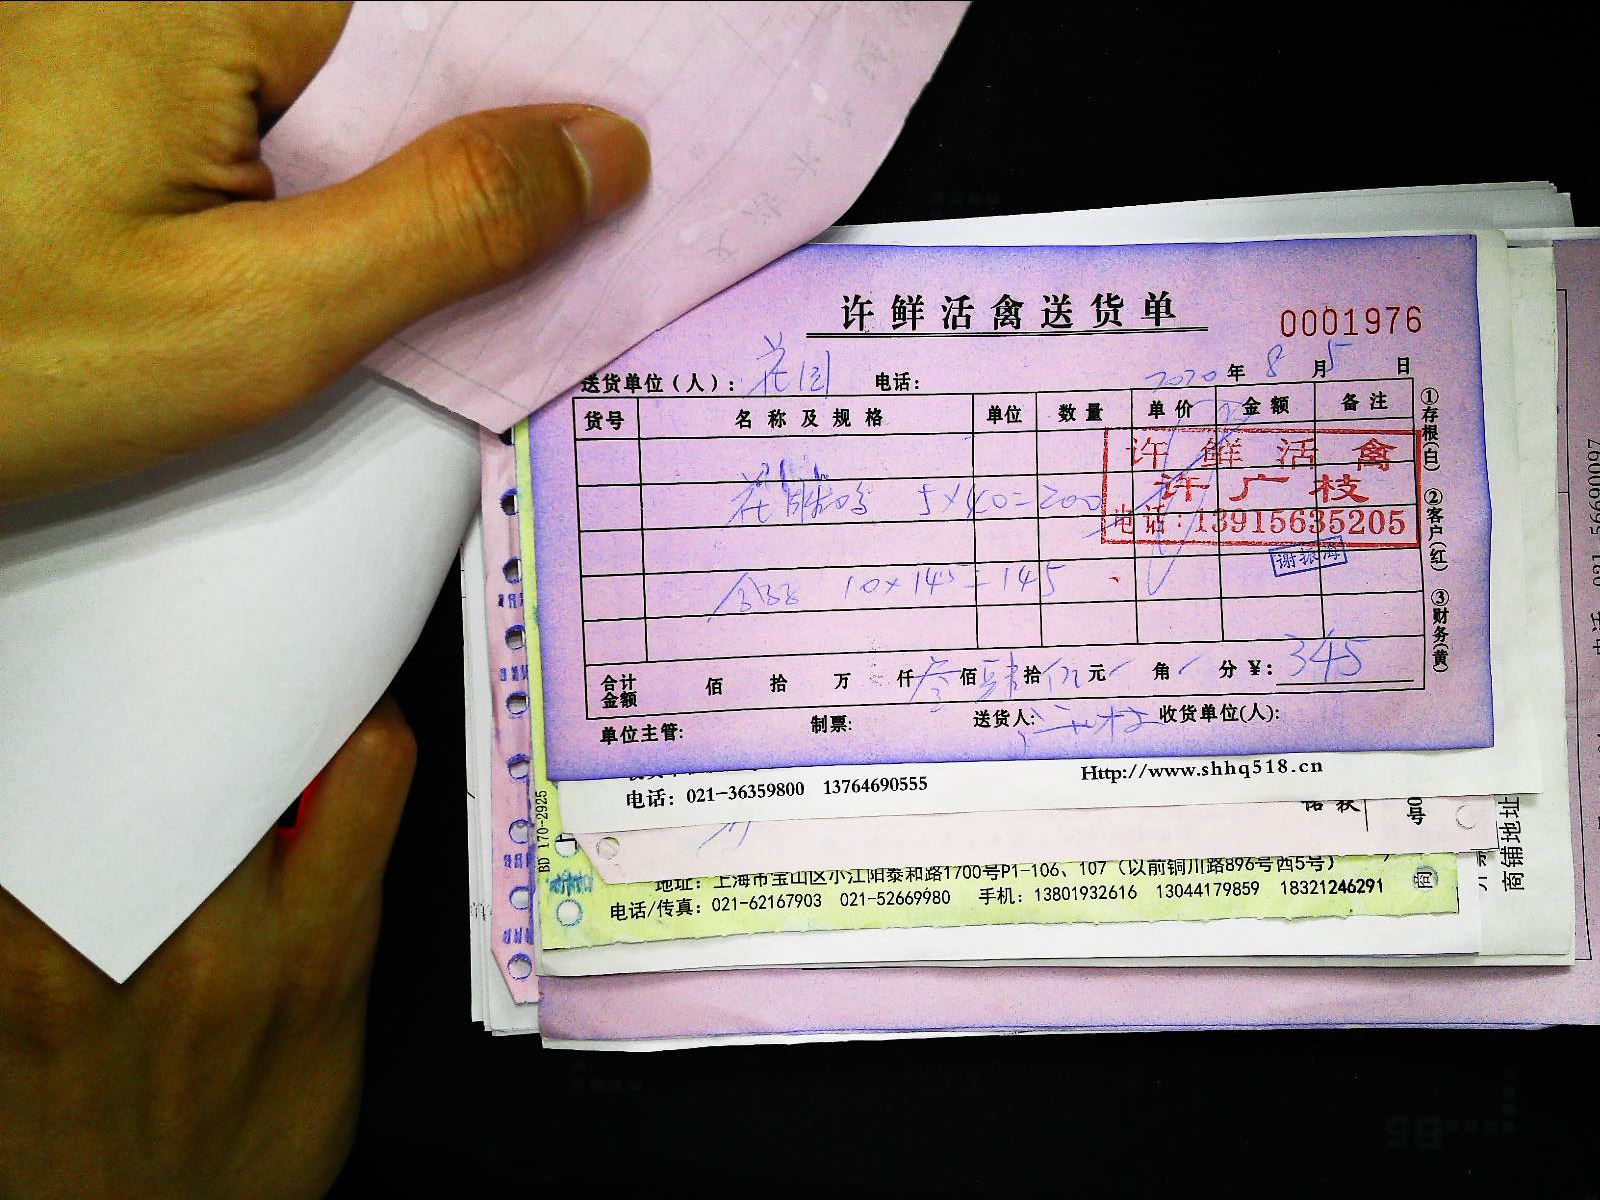 许鲜活禽送货单
0001976
送货单位(人): 花园 电话: 2020年8月5日
货号 名称及规格 单位 数量 单价 金额 备注
5×40=200
10×145=145
许鲜活禽
许广枝
电话:13915635205
谢振海
合计金额 佰 拾 万 仟叁佰肆拾伍元 角 分 ¥: 345
单位主管: 制票: 送货人: 收货单位(人):
①存根(白) ②客户(红) ③财务(黄)
Http://www.shhq518.cn
电话: 021-36359800 13764690555
号
BD 170-2925
地址: 上海市宝山区小江阳泰和路1700号P1-106、107 (以前铜川路896号西5号)
电话/传真: 021-62167903 021-52669980 手机: 13801932616 13044179859 18321246291
商铺地址
电话 021 56690097